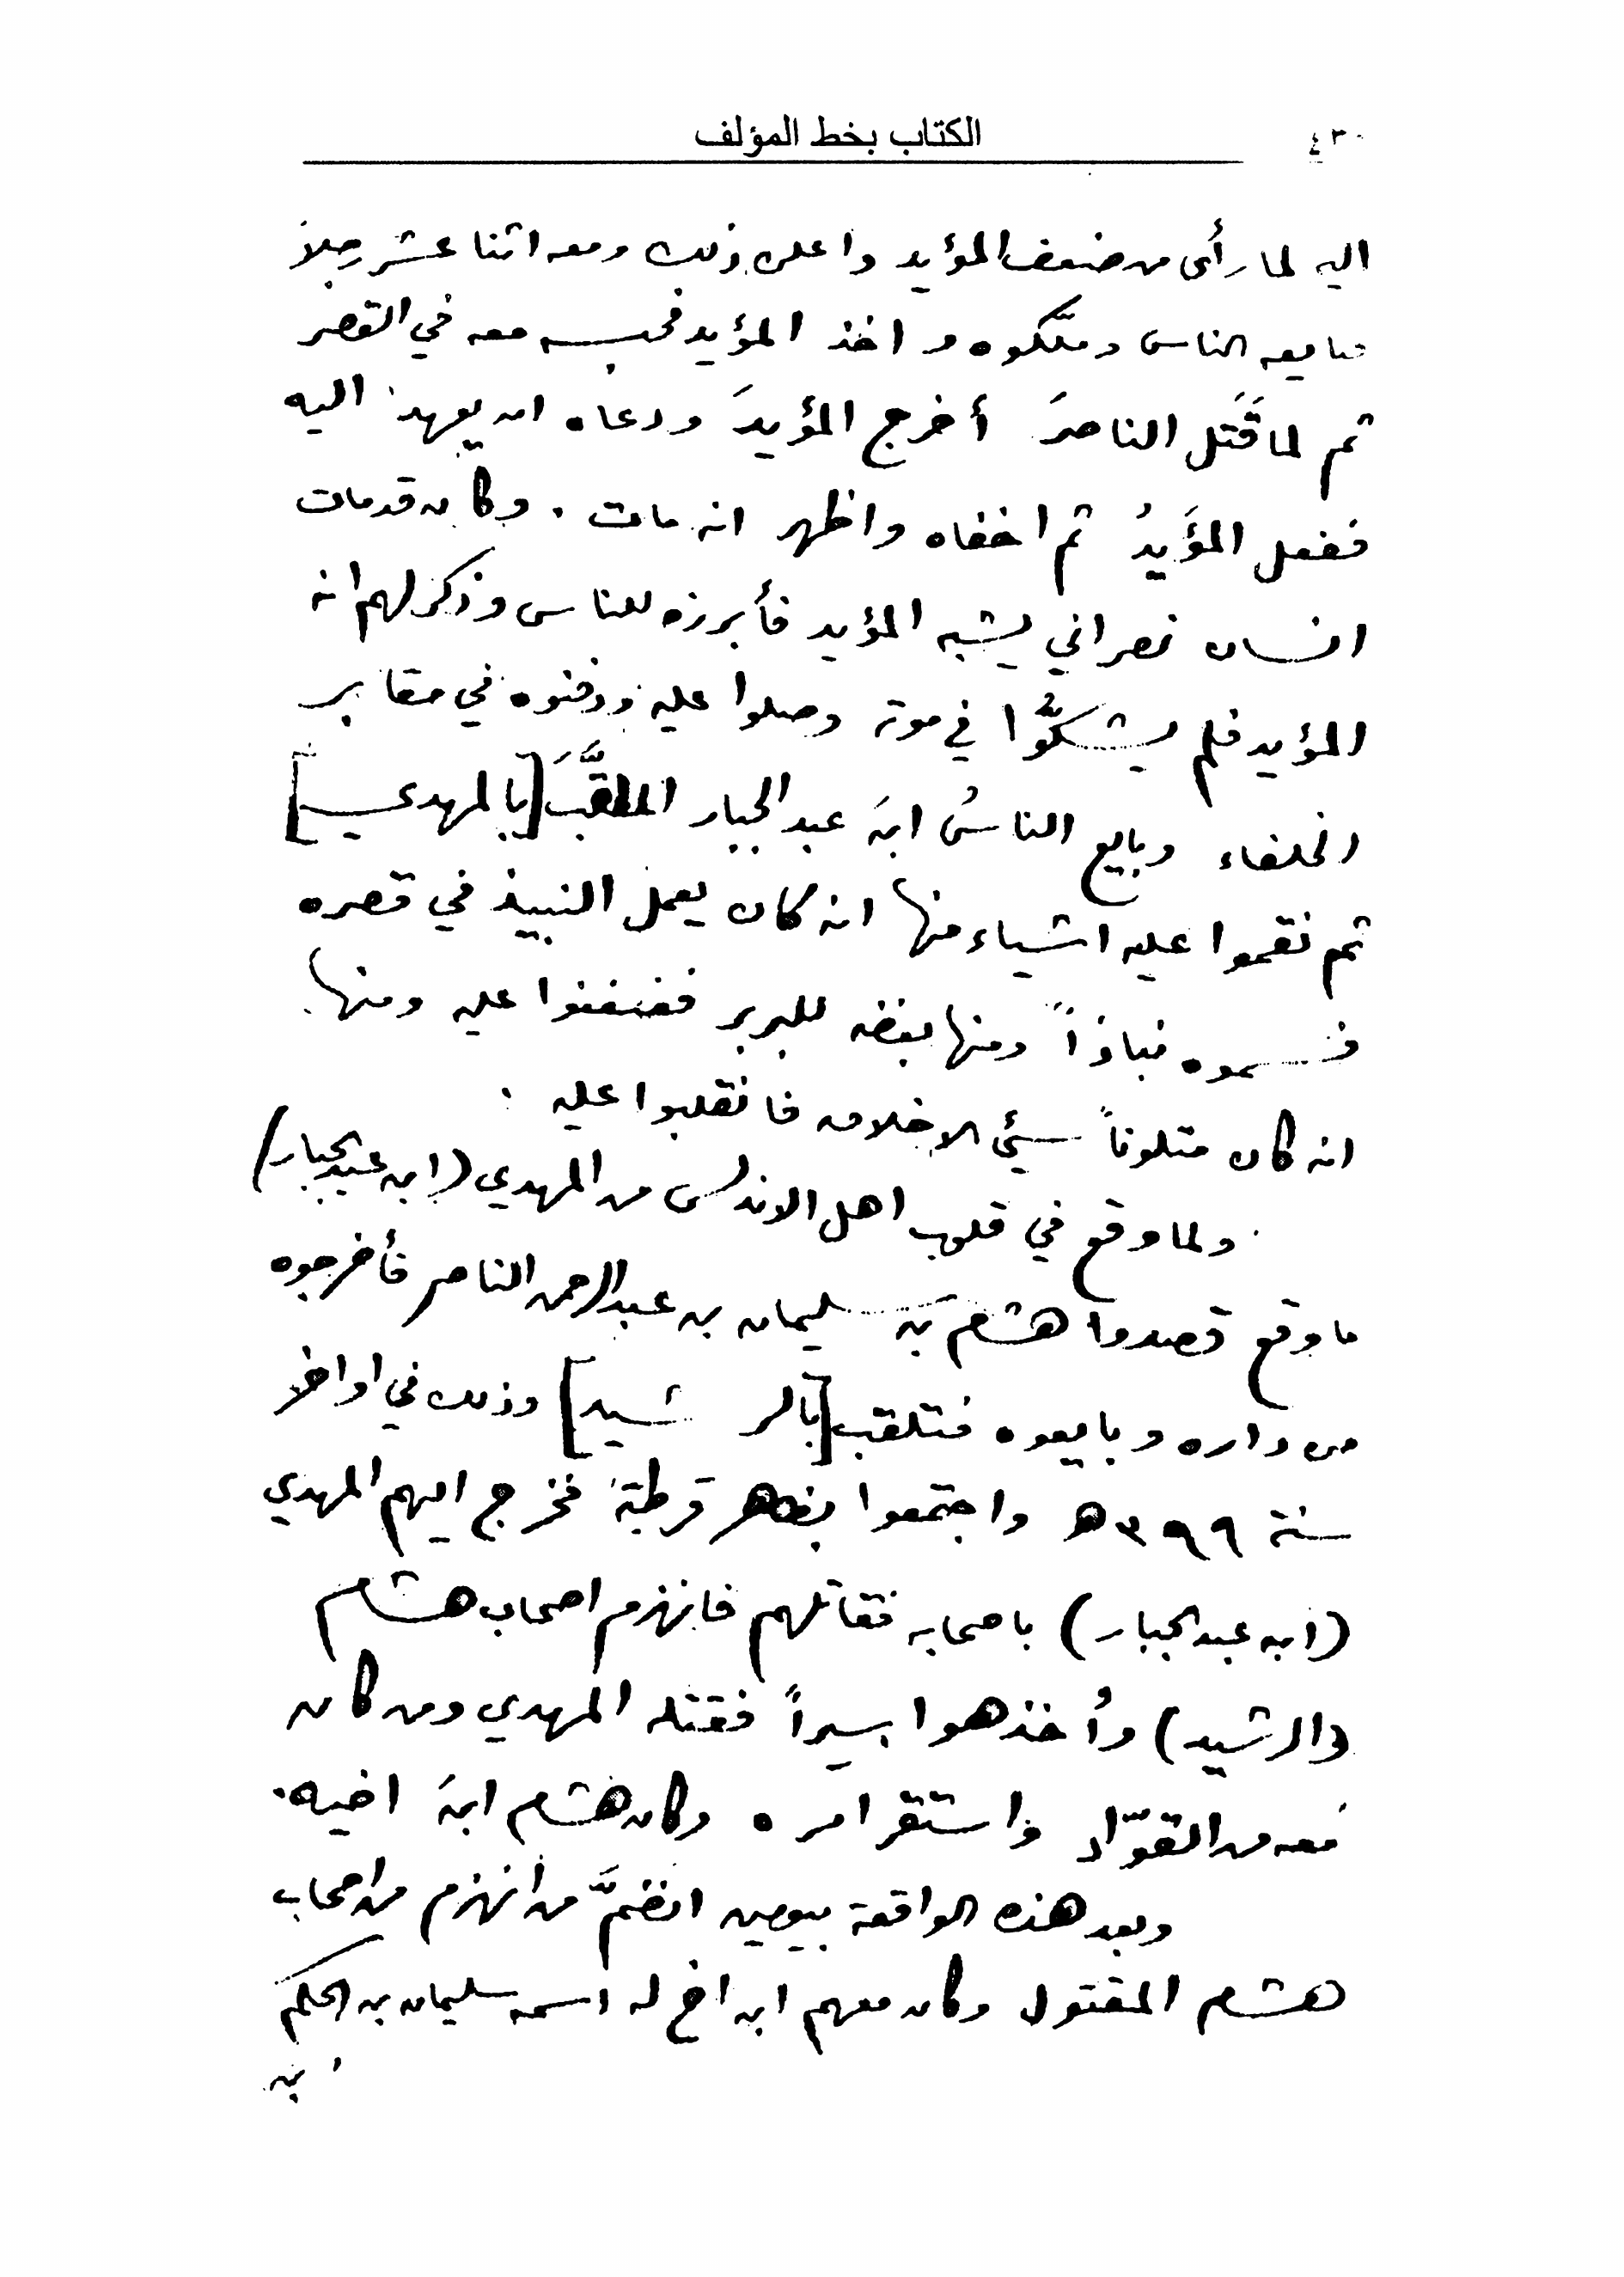 ٤٣٠ الكتاب بخط المؤلف
اليه لما رأى من ضعف المؤيد واعلن ذلك ومعه اثنا عشر رجلاً
فبايعه الناس وملّكوه واخذ المؤيد فحبسه معه في القصر
ثم لما قَتَل الناصرَ أخرج المؤيدَ ودعاه ان يعهد اليه
ففعل المؤَيدُ ثم اخفاه واظهر انه مات . وكان قد مات
انسان نصراني يشبه المؤيد فأبرزه للناس وذكر لهم انه
المؤيد فلم يشكُّوا في موته وصلوا عليه ودفنوه في مقابر
الخلفاء وبايع الناسُ ابنَ عبد الجبار الملقَّبَ [بالمهدي]
ثم نقموا عليه اشياء منها انه كان يعمل النبيذ في قصره
فسموه نباذاً ومنها بغضه للبربر فضغنوا عليه ومنها
انه كان متلوناً سيئ الاخلاق فانقلبوا عليه .
ولما وقع في قلوب اهل الاندلس من المهدي (ابن عبد الجبار)
ما وقع قصدوا هشام بن سليمان بن عبد الرحمن الناصر فأخرجوه
من داره وبايعوه فتلقب [بالرشيد] وذلك في اواخر
سنة ٣٩٩ هـ واجتمعوا بظاهر قرطبة فخرج اليهم المهدي
(ابن عبد الجبار) باصحابه فقاتلهم فانهزم اصحاب هشام
(الرشيد) وأُخذ هو اسيراً فقتله المهدي ومن كان
معه من القوّاد واستقر امره وكان هشام ابنَ اخيه.
وبعد هذه الواقعة بيومين انضمَّ من انهزم من اصحاب
هشام المقتول وكان معهم ابن اخ له اسمه سليمان بن الحكم
بن